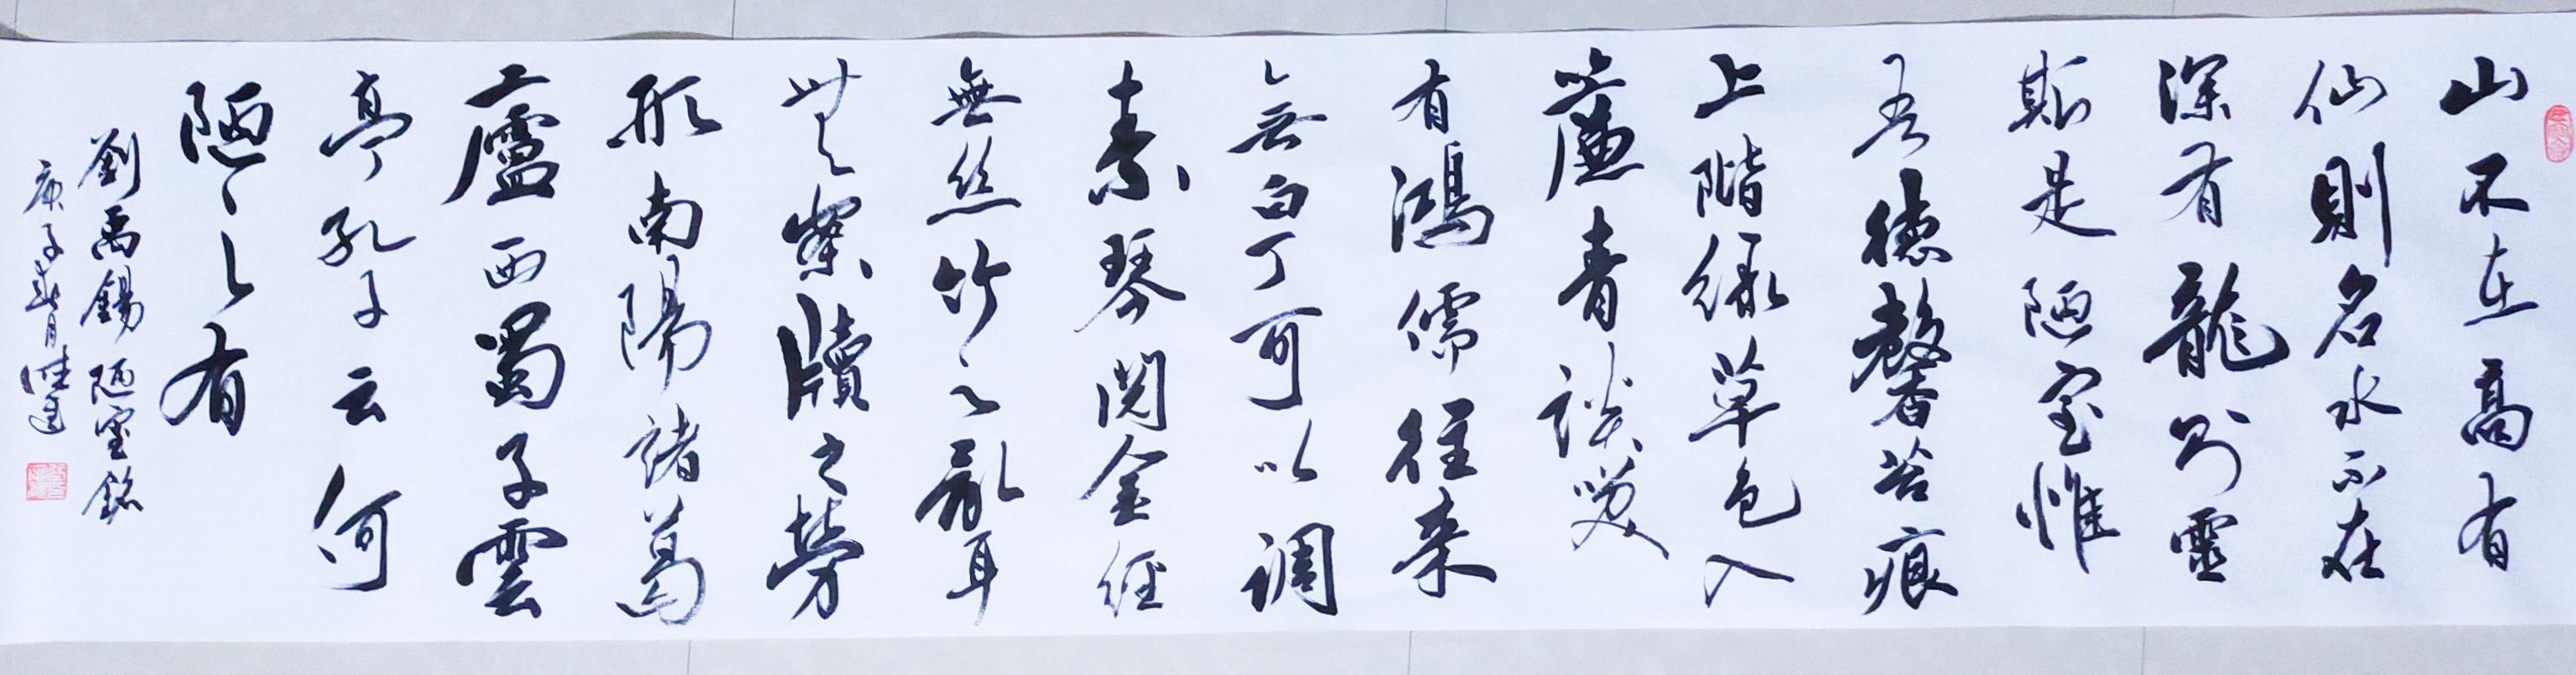 山不在高有
仙則名水不在
深有龍則靈
斯是陋室惟
吾德馨苔痕
上階緑草色入
簾青談笑
有鴻儒往来
無白丁可以调
素琴阅金經
無丝竹之亂耳
無案牘之勞
形南陽諸葛
廬西蜀子雲
亭孔子云何
陋之有
劉禹錫陋室銘
庚子春月